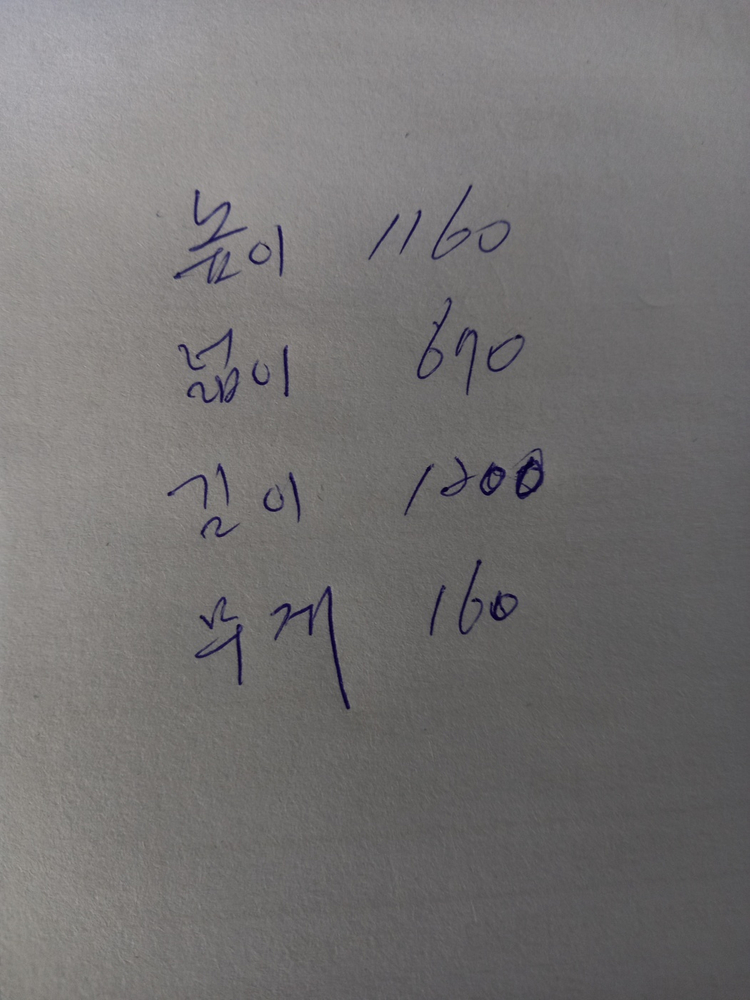 높이 1160
넓이 670
길이 1200
무게 160